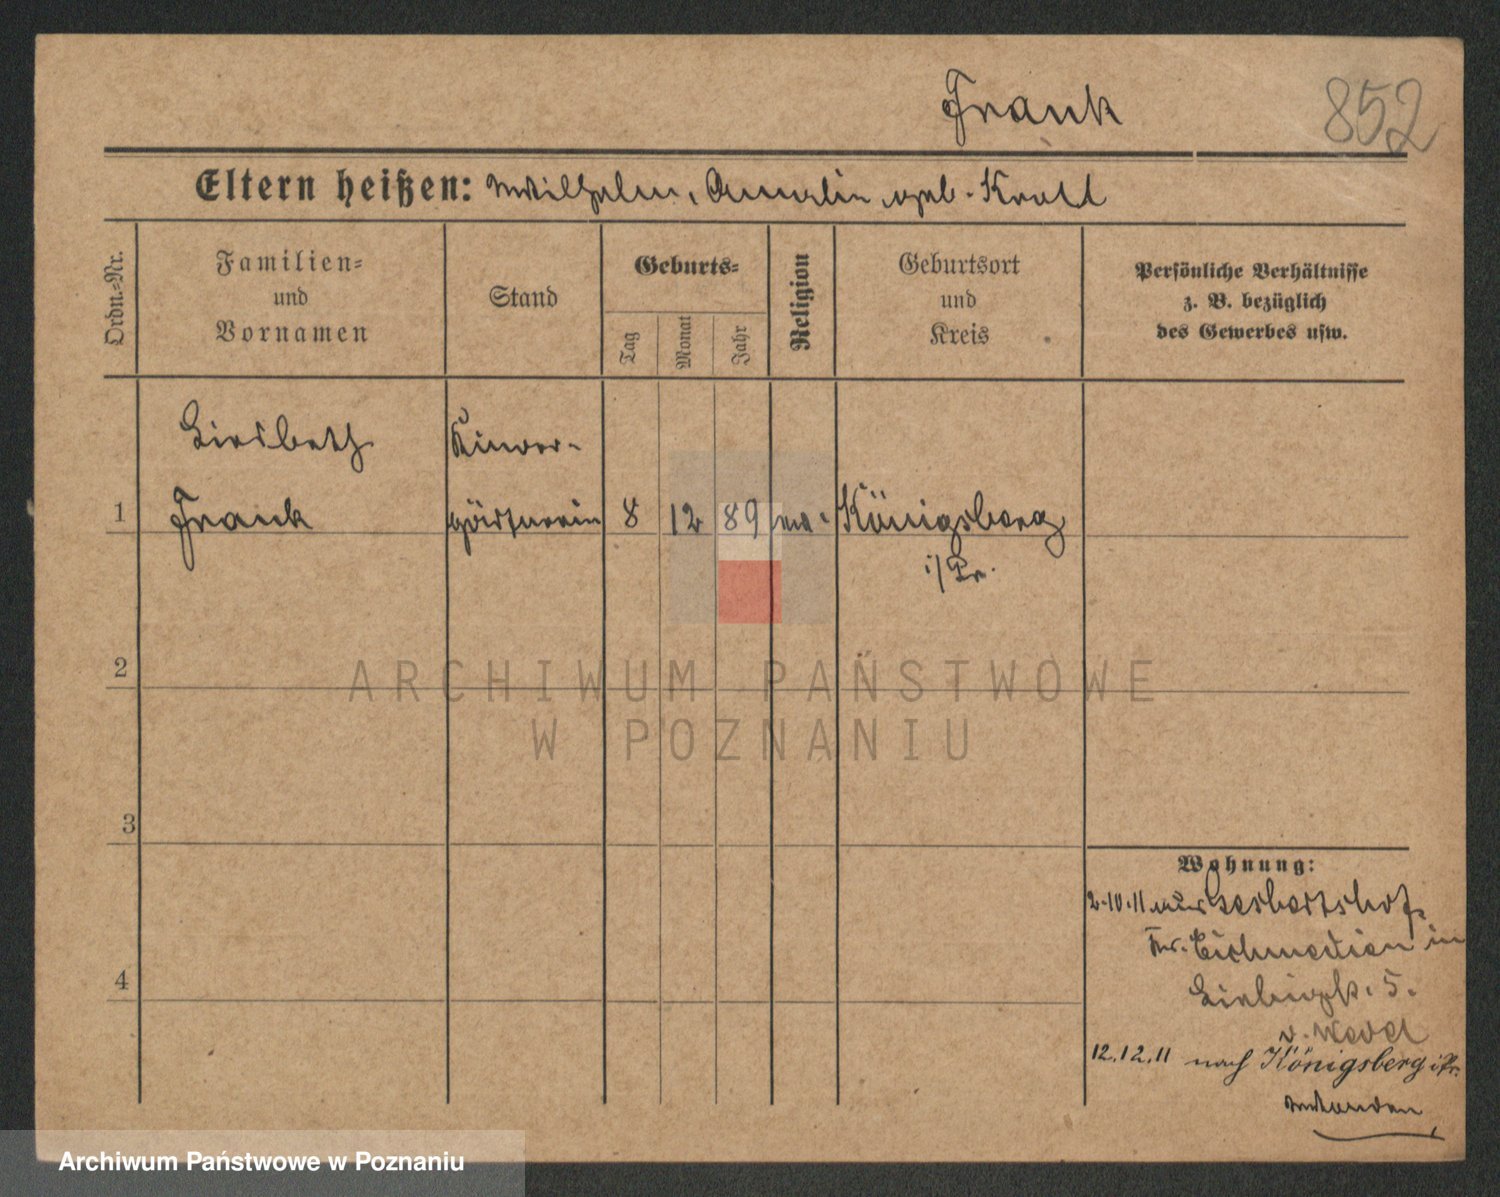 Frank
852
Eltern heißen: Wilhelm, Amalie geb. Kroll
Ordn.=Nr.
Familien=
und
Vornamen
Stand
Geburts=
Tag
Monat
Jahr
Religion
Geburtsort
und
Kreis
Persönliche Verhältnisse
z. B. bezüglich
des Gewerbes usw.
Liesbeth
Frank
Kinder-
gärtnerin
1
8
12
89
ev.
Königsberg
i/Pr.
2
3
4
Wohnung:
2.10.11 aus
Kr. in
5.
v.
12.12.11 nach Königsberg i Pr.
ARCHIWUM PAŃSTWOWE
W POZNANIU
Archiwum Państwowe w Poznaniu